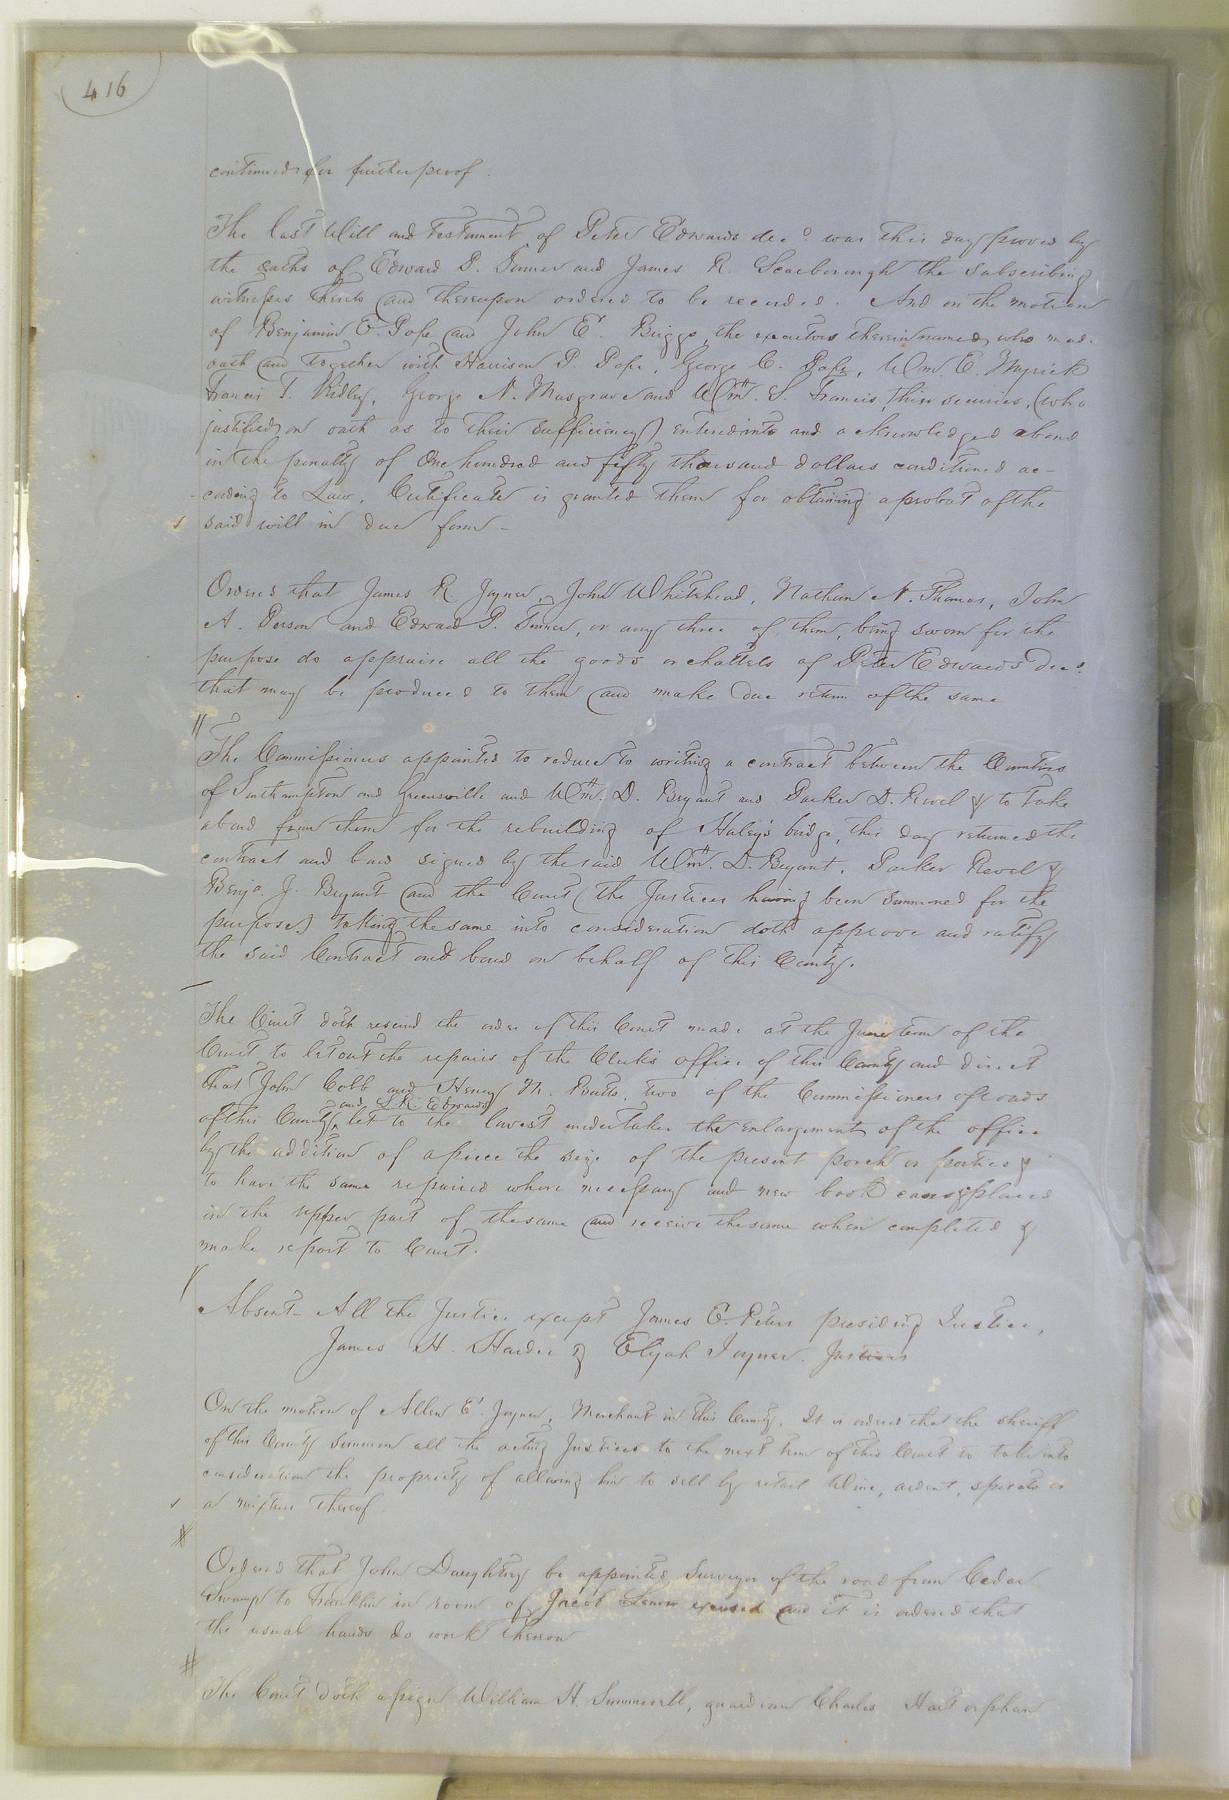 416
continued for further proof.
The last Will and testament of Peter Edwards decd. was this day proved by
the oaths of Edward P. Turner and James R. Scarborough the subscribing
witnesses thereto and thereupon ordered to be recorded. And on the motion
of Benjamin E. Pope and John E. Briggs, the executors therein named, who made
oath and together with Harrison P. Pope, George C. Pope, Wm. E. Myrick
Francis T. Ridley, George N. Musgrave and Wm. S. Francis, their securies, (who
justified on oath as to their sufficiency) entered into and acknowledged a bond
in the penalty of One hundred and fifty thousand dollars conditioned ac-
-cording to Law. Certificate is granted them for obtaining a probat of the
said will in due form -
Ordered that James R. Joyner, John Whitehead, Nathan N. Thomas, John
A. Person and Edward P. Turner, or any three of them, being sworn for the
purpose do appraise all the goods or chattels of Peter Edwards Decd.
that may be produced to them and make due return of the same
The Commissioners appointed to reduce to writing a contract between the Counties
of Southampton and Greensville and Wm. D. Bryant and Parker D. Revel & to take
a bond from them for the rebuilding of Haley's bridge, this day returned the
contract and bond signed by the said Wm. D. Bryant, Parker Revel &
Benja. J. Bryant and the Court (the Justices having been summoned for the
purpose) taking the same into consideration doth approve and ratify
the said Contract and bond on behalf of this County.
The Court doth rescind the order of this Court made at the June term of the
Court to let out the repairs of the Clerk's office of this County and direct
that John Cobb and Henry M. Butts, two of the Commissioners of roads
and L.R. Edwards
of this County, let to the lowest undertaker the enlargement of the office
by the addition of a piece the size of the present porch or portico &
to have the same repaired where necessary and new book cases placed
in the upper part of the same and receive the same when completed &
make report to Court.
Absent - All the Justices except James E. Peters presiding Justice,
James H. Harder & Elijah Joyner. Justices
On the motion of Allen E. Joyner, Merchant in this County, It is ordered that the sheriff
of this County summon all the acting Justices to the next term of this Court to take into
consideration the propriety of allowing him to sell by retail Wine, ardent, spirits or
a mixture thereof
Ordered that John Daughtry be appointed Surveyor of the road from Cedar
Swamp to Franklin in room of Jacob excused and it is ordered that
the usual hands do work thereon
The Court doth assign William H. Summerell, guardian Charles Hart orphan